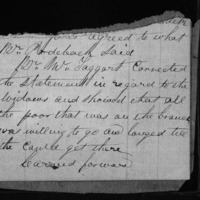 agreed to what
Mr. Rodeback Said
Mr. Mc Taggart Corrected
the Statement in regard to the
widows and showed that all
the poor that was on the branch
was willing to go and
the Cattle get there
forward